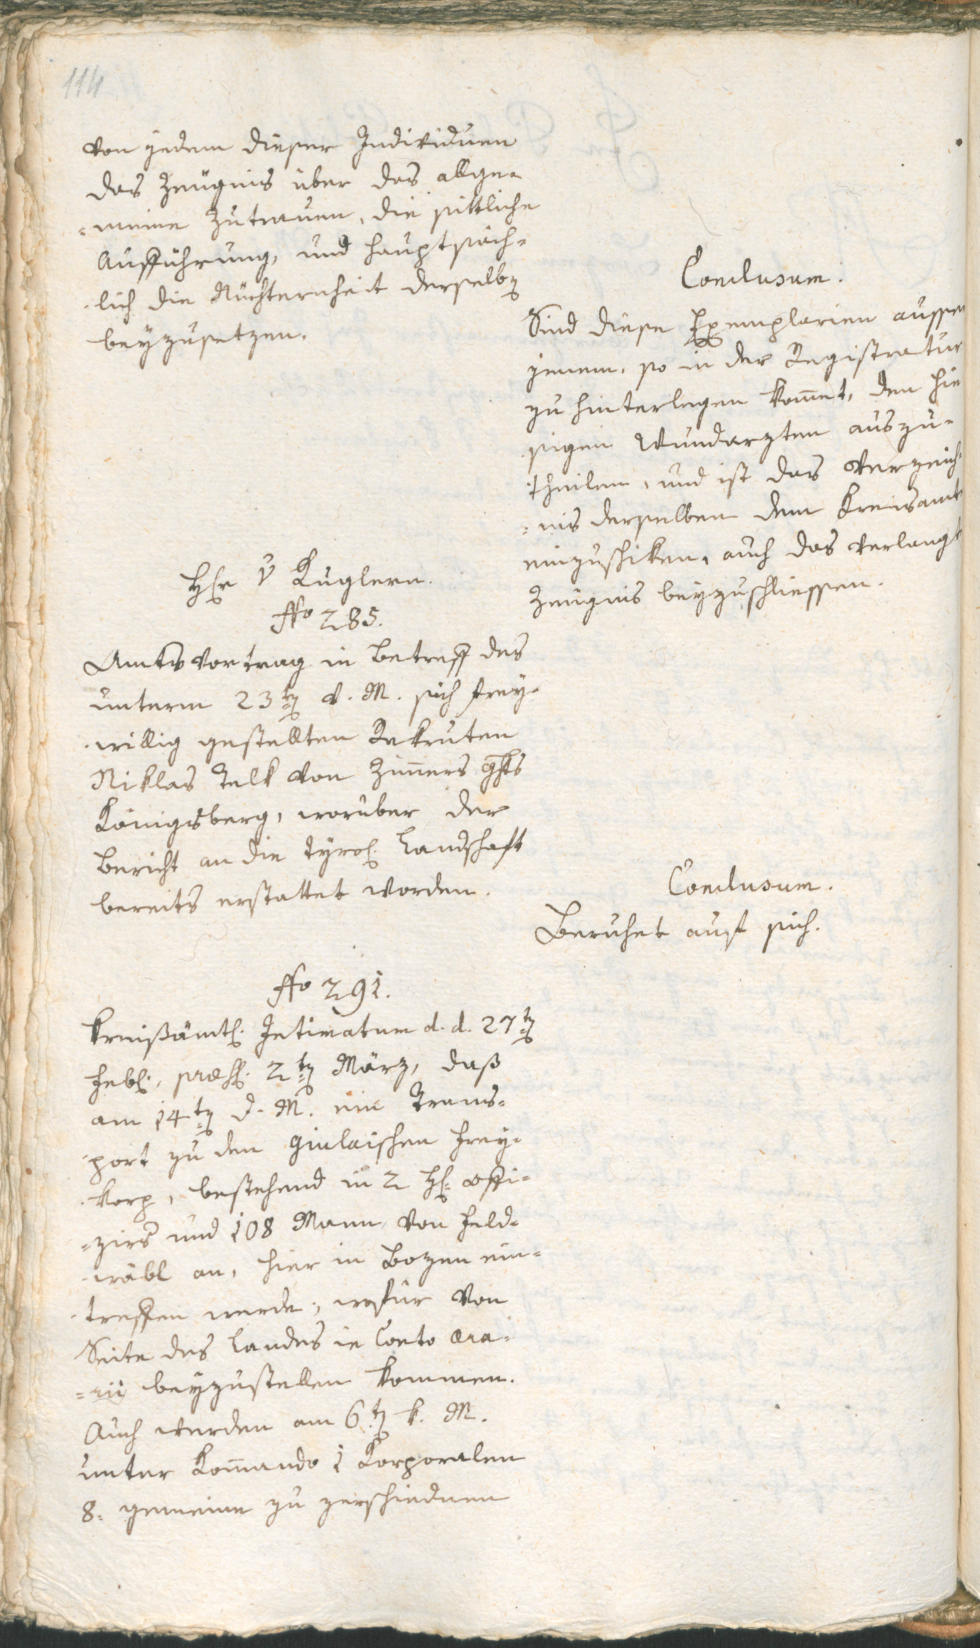 114
von jedem dieser Individuen
das Zeugnis über das allge=
=meine Zutrauen, die sittliche
Aufführung, und hauptsäch=
lich die Nüchternheit derselben
beyzusetzen.
Conclusum.
Sind diese Exemplarien ausser
jenem, so in der Registratur
zu hinterlegen kom̅t, den hie
sigen Wundarzten auszu=
theilen, und ist das Verzeich=
=nis derselben dem Kreisamte
einzushiken, auch das verlangte
Zeugnis beyzuschliessen.
H̅r v Kuglern.
No 285.
Amtsvortrag in Betreff des
unterm 23ten d. M. sich frey=
willig gestellten Rekruten
Niklas Telk von Zim̅ers Ghts
Königsberg, worüber der
Bericht an die tyrol. Landschaft
bereits erstattet worden.
Conclusum.
Beruhet auf sich.
No 291.
Kreißämtl. Intimatum d. d. 27ten
Febr., præs. 2ten März, daß
am 14ten d. M. ein Trans=
port zu den Giulaischen Frey=
korp, bestehend in 2 H. Offi=
=zirs und 108 Mann von Feld=
wäbl an, hier in Bozen ein=
treffen werde, wofür von
Seite des Landes in Conto æra=
=rii beyzustellen kommen.
Auch werden am 6ten k. M.
unter Kom̅ando 1 Korporalen
8. gemeine zu verschiednen